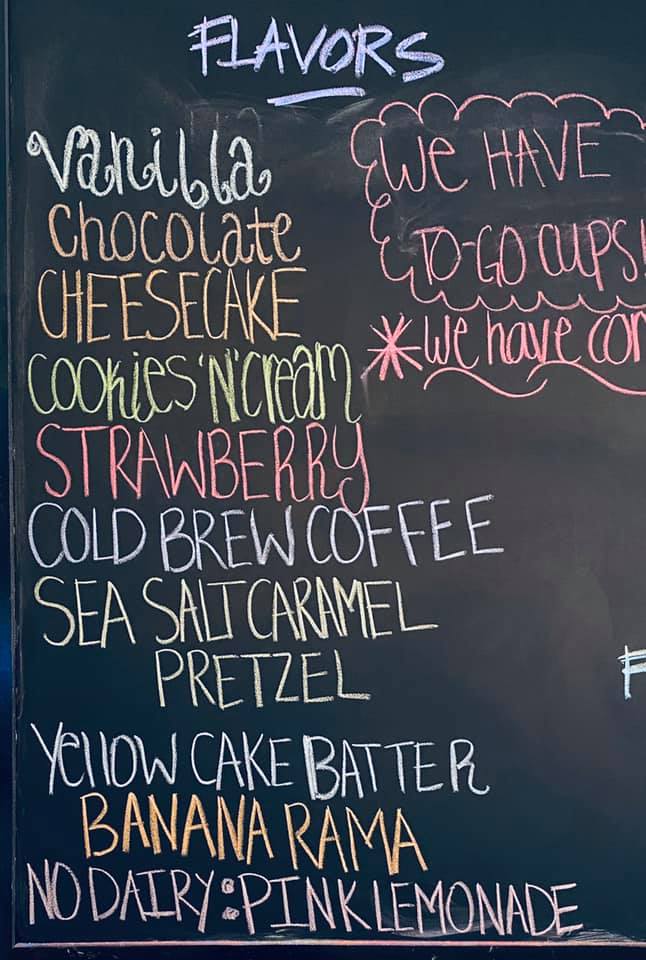 FLAVORS
Vanilla
Chocolate
CHEESECAKE
Cookies 'N' Cream
STRAWBERRY
COLD BREW COFFEE
SEA SALT CARAMEL
PRETZEL
Yellow CAKE BATTER
BANANA RAMA
NO DAIRY: PINK LEMONADE
We HAVE
TO-GO CUPS!
*we have